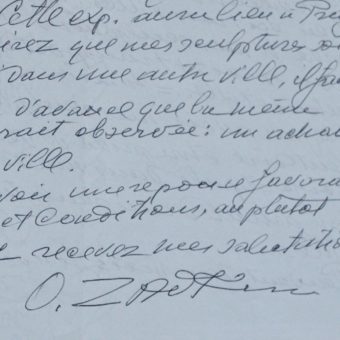 Cette exp. aura lieu à Pra
irez que mes sculptures so
dans une autre ville, il fau
d'avance que la même
rait observée: un acha
ville.
voir une réponse favora
et conditions, au plutôt
recevez mes salutatio
O. ZADKINE